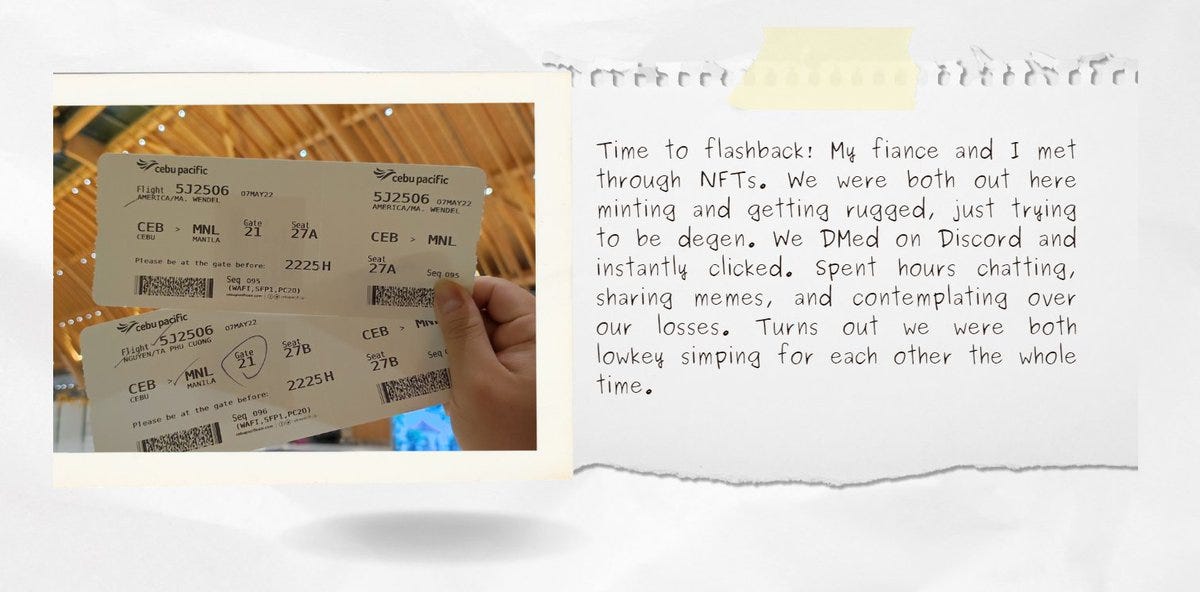 cebu pacific
cebu pacific
Flight 5J2506 07MAY22
AMERICA/MA. WENDEL
5J2506 07MAY22
AMERICA/MA. WENDEL
CEB > MNL
CEBU MANILA
Gate 21
Seat 27A
CEB > MNL
Please be at the gate before: 2225H
27A
Seq 095
Seq 095
(WAFI,SFP1,PC20)
cebu pacific
Flight 5J2506 07MAY22
NGUYEN/TA PHU CUONG
CEB > MNL
CEBU MANILA
Gate 21
Seat 27B
CEB > MN
Please be at the gate before: 2225H
Seat 27B
Seq
Seq 096
(WAFI,SFP1,PC20)
Time to flashback! My fiance and I met
through NFTs. We were both out here
minting and getting rugged, just trying
to be degen. We DMed on Discord and
instantly clicked. Spent hours chatting,
sharing memes, and contemplating over
our losses. Turns out we were both
lowkey simping for each other the whole
time.